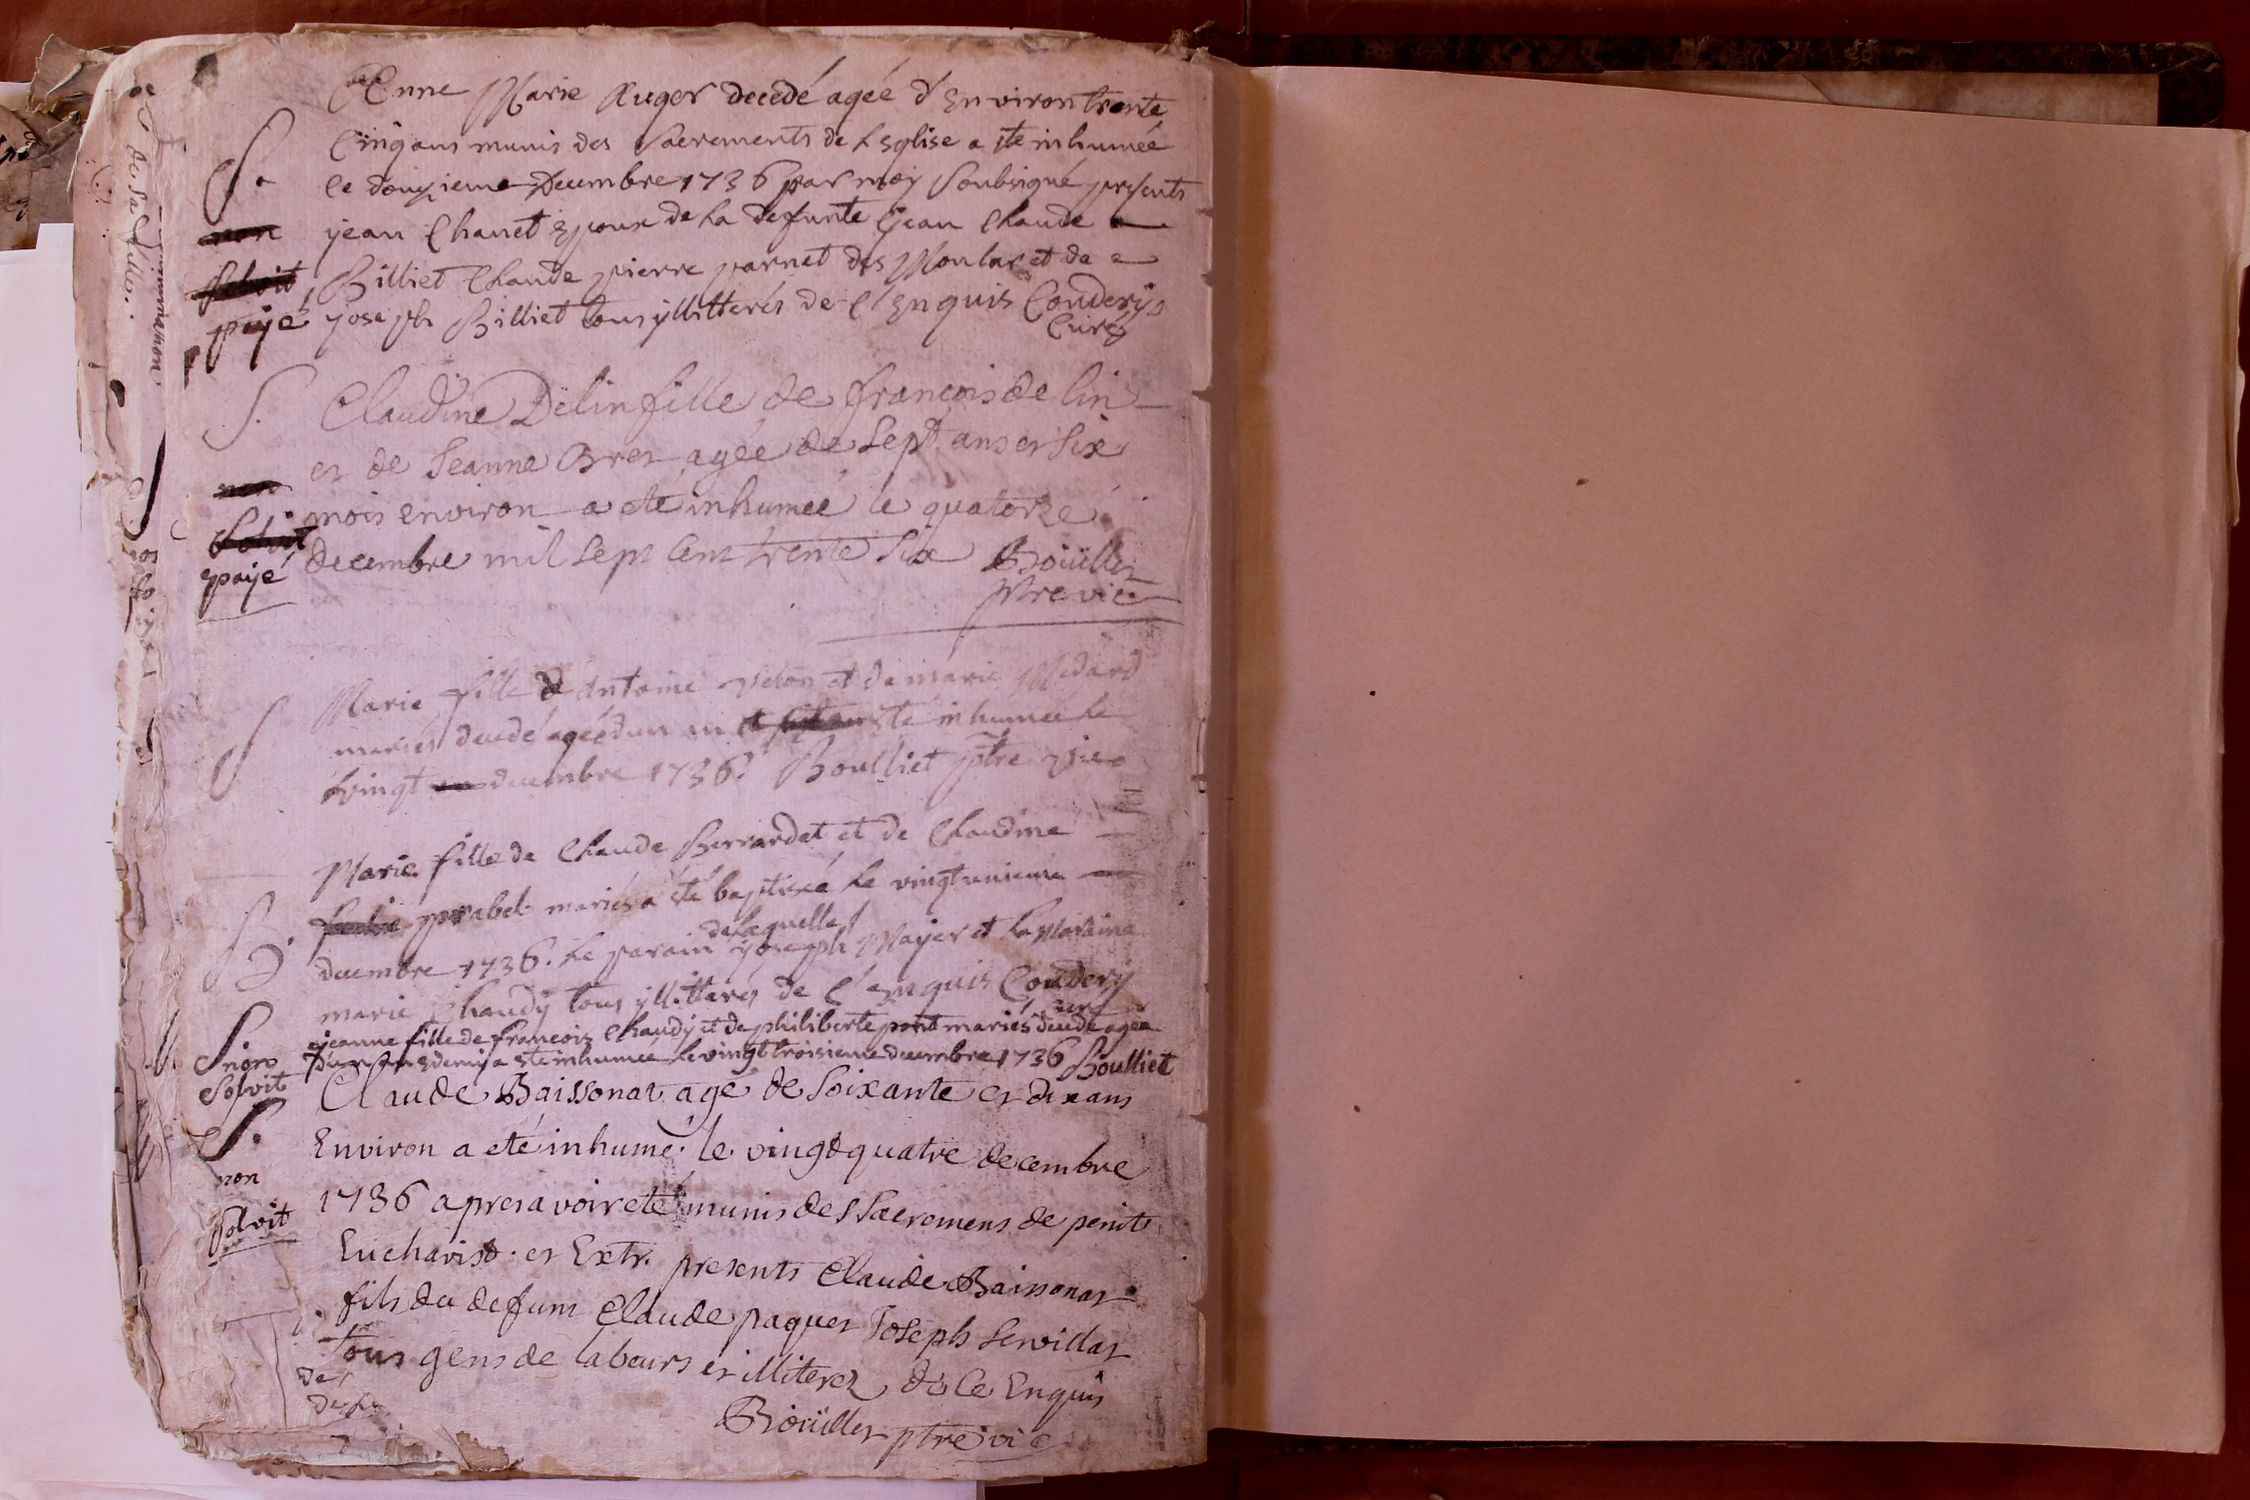 Enne Marie Auger decedé agée d'Environ trente
Cinq ans munis des Sacrements de L'Eglise a ete inhumée
S. Le douzieme Decembre 1736 par moy Soubsigné presents
non jean Chanet Epoux de La defunte jean Claude
Solvit Billiet Claude pierre parnet des Moulax et de
payé joseph Billiet tous yllitterés de C'Enquis Coudery
Curé
S. Claudine Delin fille de francois de lin
et de Jeanne Bret agée de Sept ans et Six
non mois environ a eté inhumeé le quatorze
Solvit decembre mil Sept Cent trente Six Boüillet
payé ptre vic.
Marie fille de Antoine et de marie Medard
S mariés decedé agée dun an ete inhumée Le
vingt decembre 1736. Boulliet ptre vic
Marie fille de Claude Berrardet et de Claudine
B. prabel mariés a eté baptisée Le vingtunieme
de Laquelle
decembre 1736. Le parain joseph Mayer et La Maraine
marie Chaudy tous yllitterés de C'enquis Coudery
curé
S jeanne fille de francois Chaudy et de philiberte pont mariés decedé agée
non D'un an & demy a ete inhumée Le vingt troisieme decembre 1736 Boulliet
Solvit Claude Baissonat agé de Soixante et dix ans
S. Environ a eté inhumé le vingt quatre decembre
non 1736 apres avoir eté munis des Sacremens de penit.
Solvit Eucharist. et Extr. presents Claude Baissonat
fils du defunt Claude paquet Joseph Servillat
Tous gens de labeurs et illiterez de Ce Enquis
Boüillet ptre vic